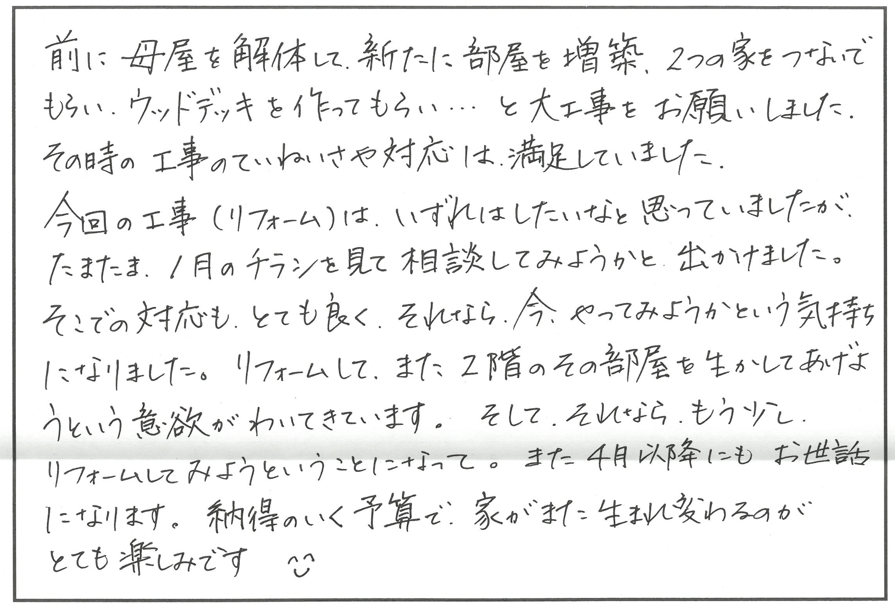 前に母屋を解体して、新たに部屋を増築、2つの家をつないで
もらい、ウッドデッキを作ってもらい… と大工事をお願いしました。
その時の工事のていねいさや対応は、満足していました。
今回の工事(リフォーム)は、いずれはしたいなと思っていましたが、
たまたま、1月のチラシを見て相談してみようかと、出かけました。
そこでの対応も、とても良く、それなら、今、やってみようかという気持ち
になりました。リフォームして、また2階のその部屋を生かしてあげよ
うという意欲がわいてきています。そして、それなら、もう少し、
リフォームしてみようということになって。また4月以降にもお世話
になります。納得のいく予算で、家がまた生まれ変わるのが
とても楽しみです